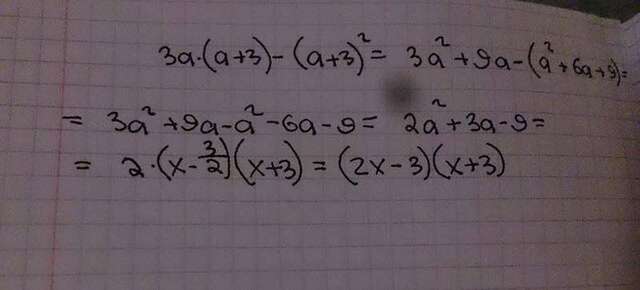 3a·(a+3)-(a+3)²= 3a²+9a-(a²+6a+9)=
= 3a²+9a-a²-6a-9= 2a²+3a-9=
= 2·(x-3/2)(x+3)=(2x-3)(x+3)